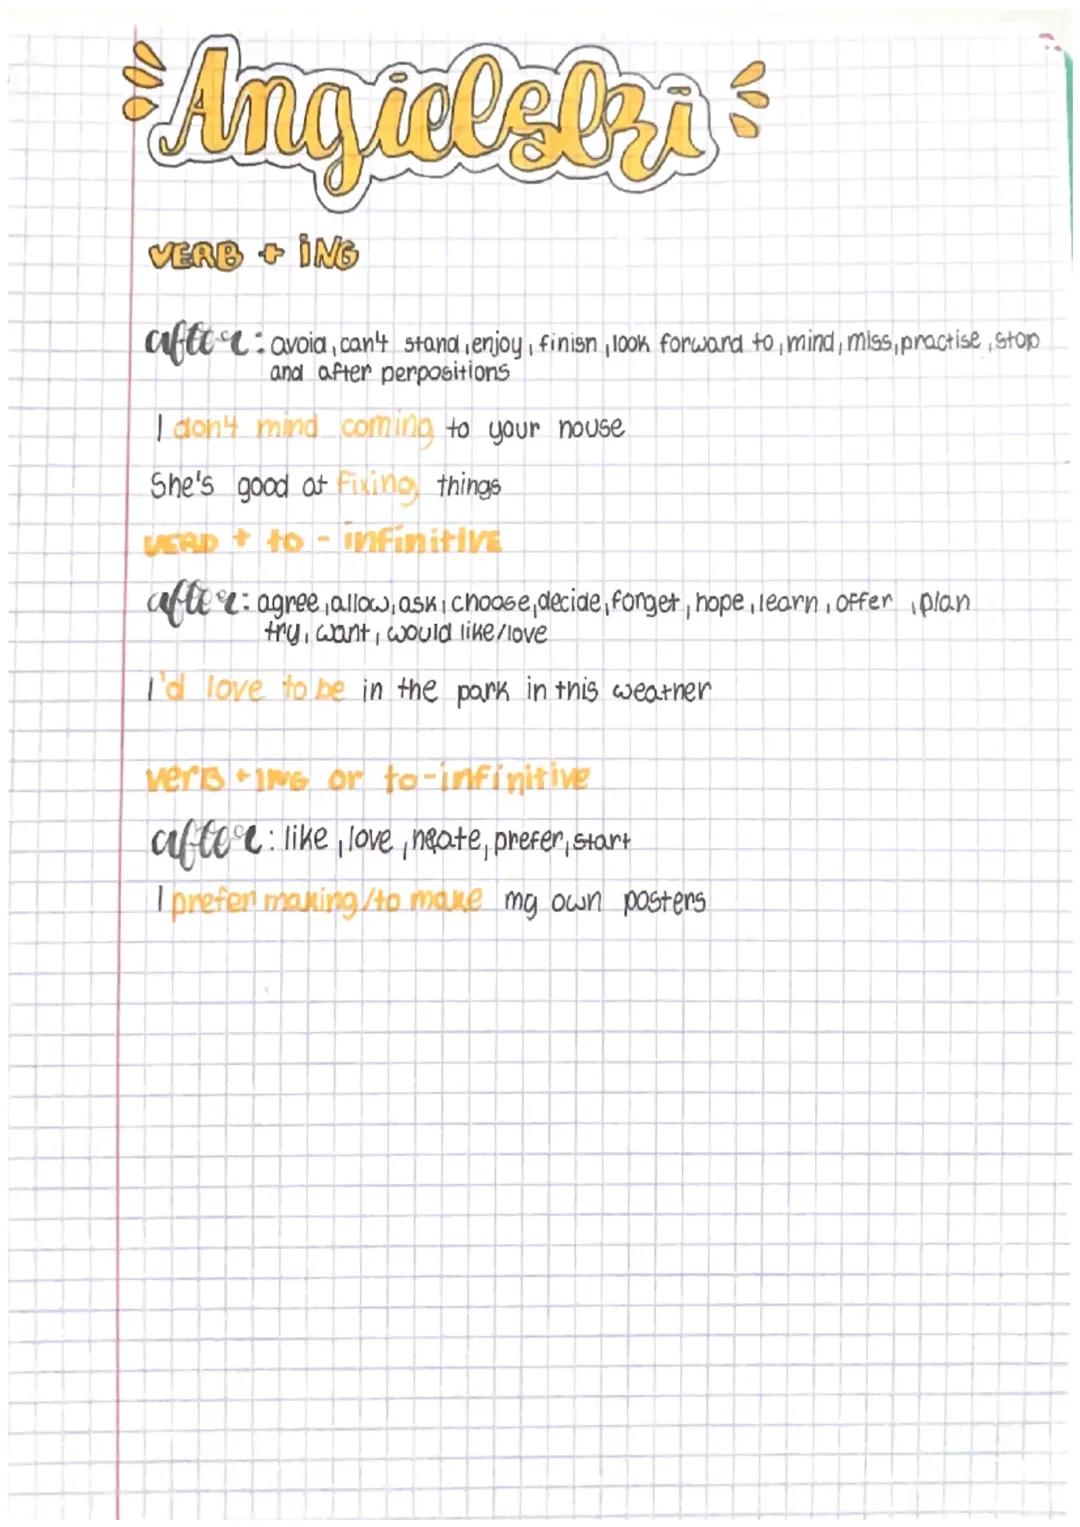 Angielski
VERB + ING
after: avoid, can't stand, enjoy, finish, look forward to, mind, miss, practise, stop
and after perpositions
I don't mind coming to your house
She's good at fixing things
VERB + to - infinitive
after: agree, allow, ask, choose, decide, forget, hope, learn, offer, plan
try, want, would like/love
I'd love to be in the park in this weather
verB + ING or to-infinitive
after: like, love, heate, prefer, start
I prefer making/to make my own posters